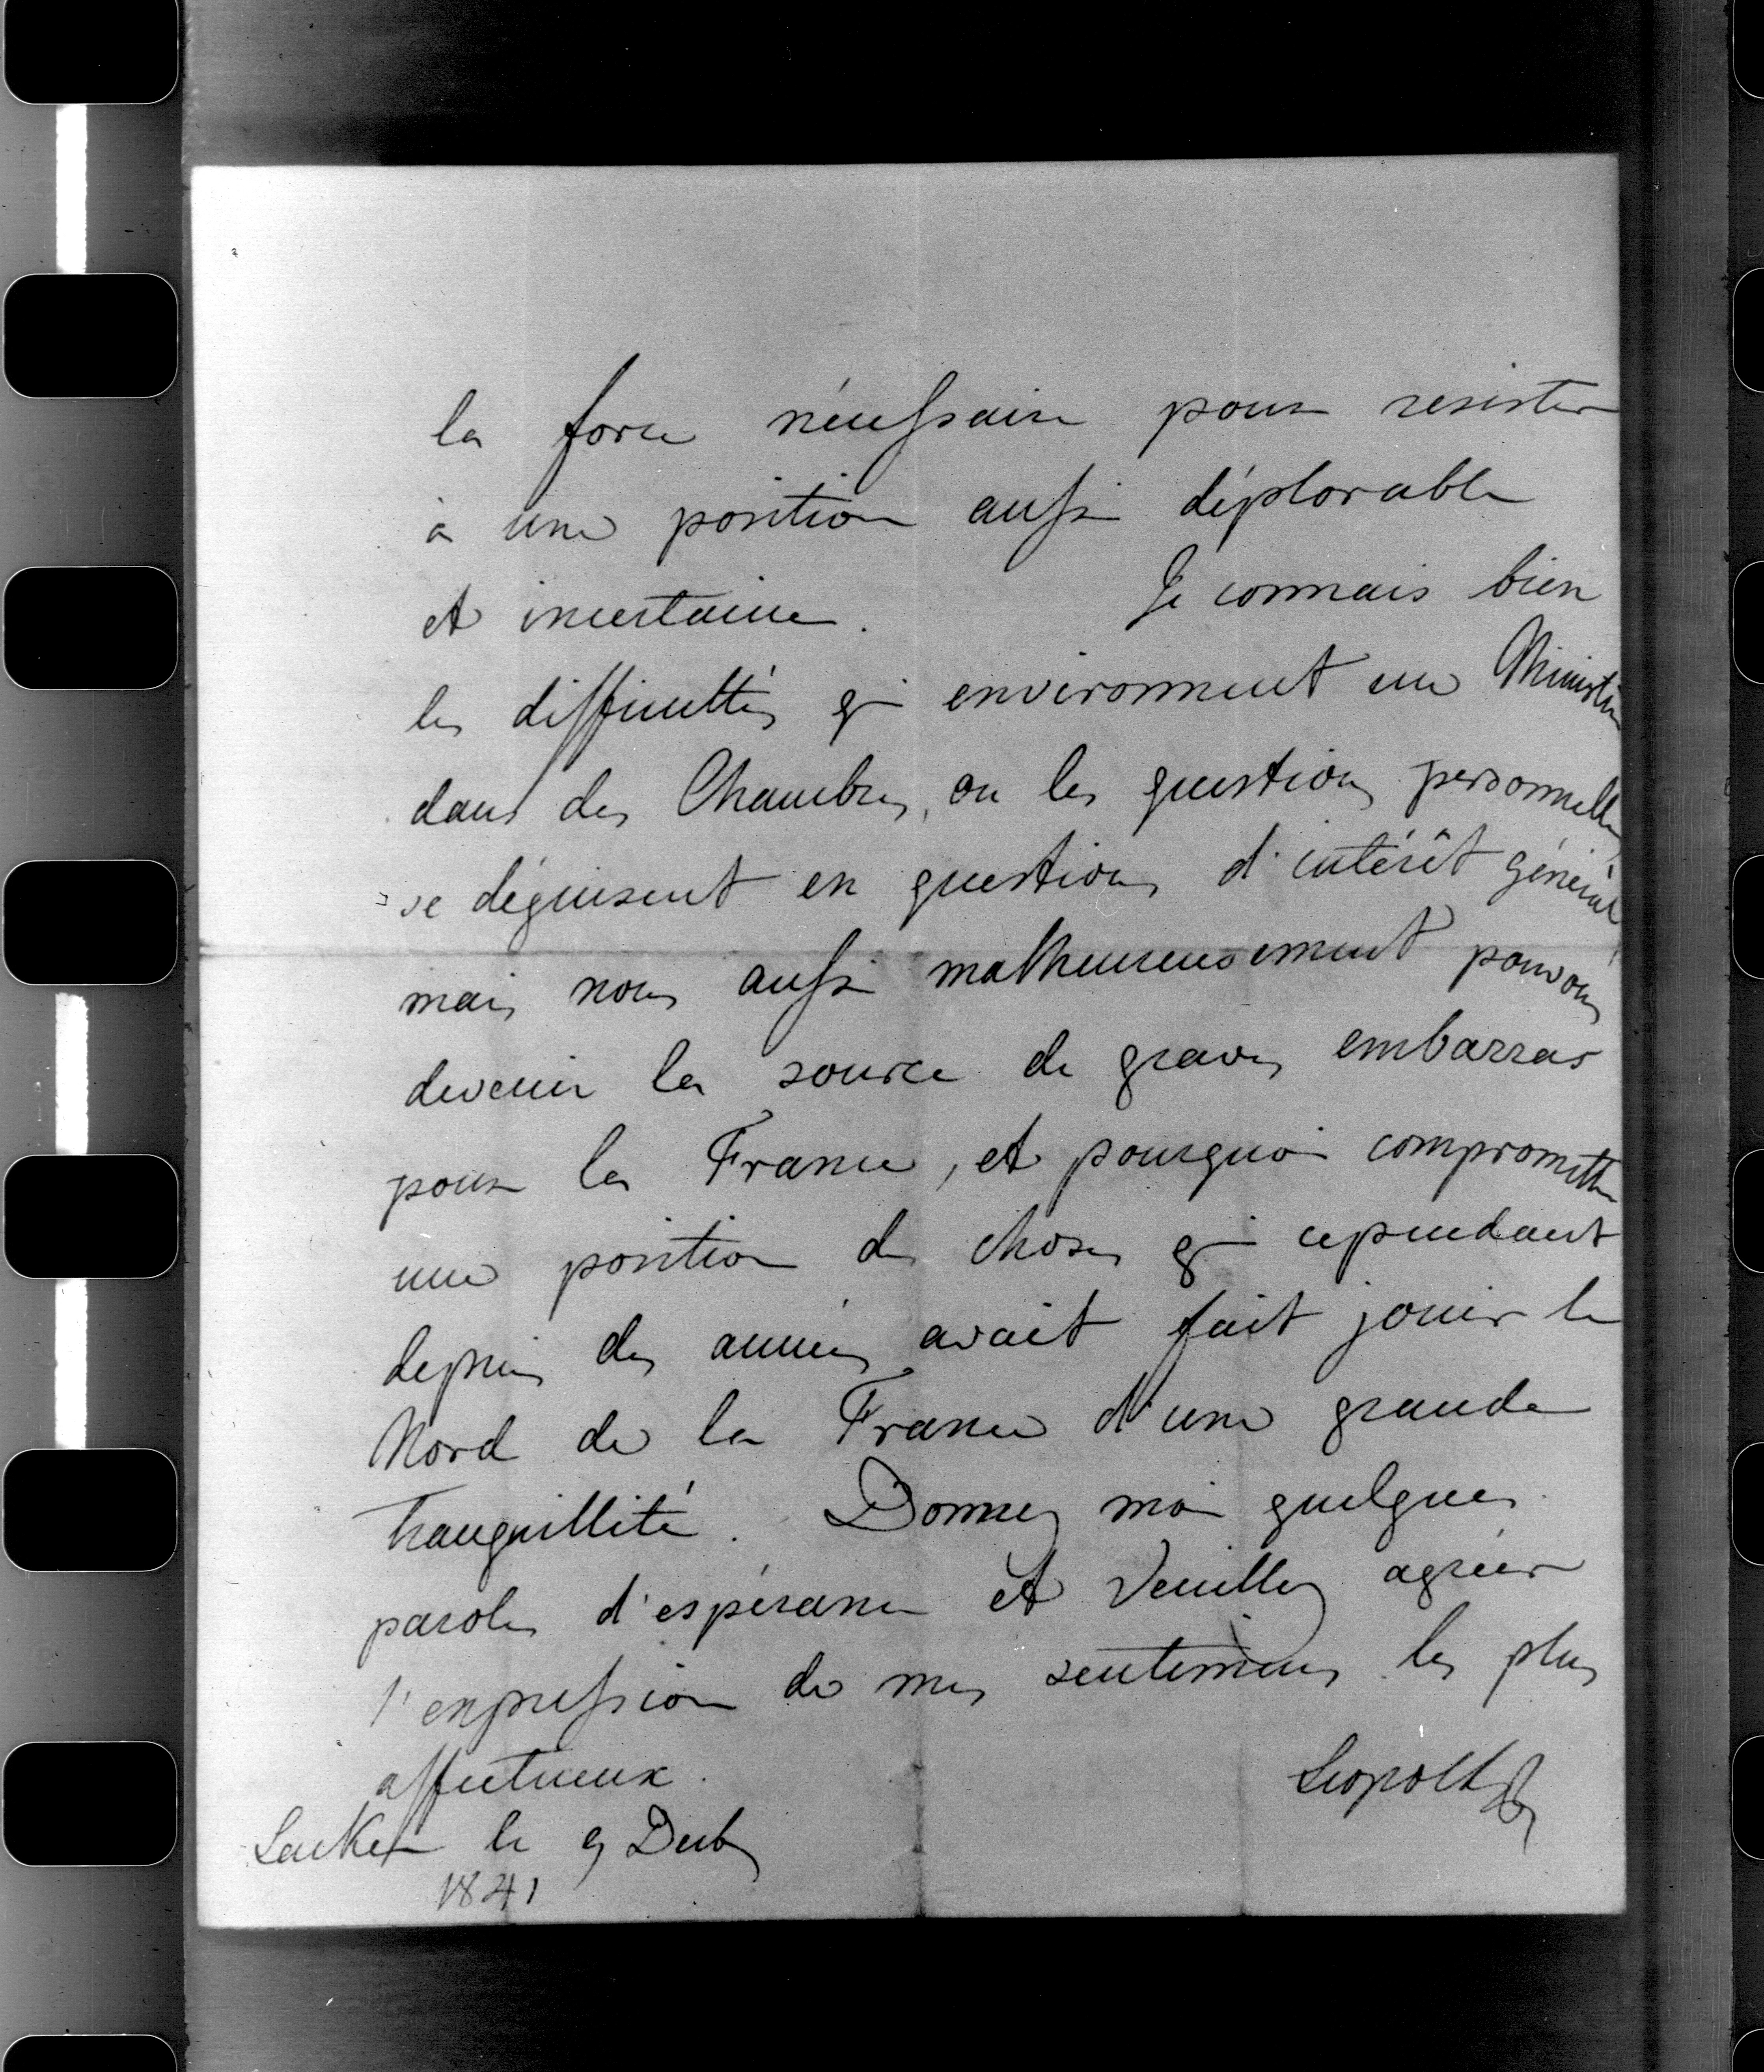 la force nécessaire pour resister
à une position aussi déplorable
et incertaine. Je connais bien
les difficultés qui environnent un Ministère
dans des Chambres, ou les questions personnelles
se déguisent en questions d'intérêt général
mais nous aussi malheureusement pouvons
devenir la source de graves embarras
pour la France, et pourquoi compromettre
une position de choses qui cependant
depuis des années avait fait jouir le
Nord de la France d'une grande
tranquillité. Donnez moi quelques
paroles d'espérance et veuillez agréer
l'expression de mes sentimens les plus
affectueux. Leopold
Laeken le 9 Decb
1841